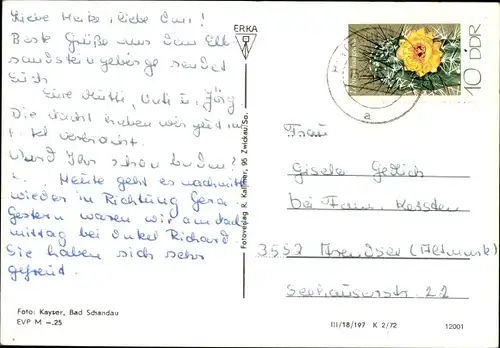 Liebe Heike, liebe Omi!
Beste Grüße aus dem Elb-
sandsteingebirge sendet
Euch
Eure Mutti, Vati u. Jörg
Die Nacht haben wir gut im
verbracht.
Wart Ihr schon baden?
Heute geht es nachmitt.
wieder in Richtung Gera.
Gestern waren wir am Nach
mittag bei Onkel Richard.
Sie haben sich sehr
gefreut.
Foto: Kayser, Bad Schandau
EVP M –.25
ERKA
Fotoverlag R. Kallmer, 95 Zwickau/Sa.
10 DDR
a
Frau
Gisela
bei Fam.
3552 Arendsee (Altmark)
Seehausenerstr. 22
III/18/197 K 2/72 12001